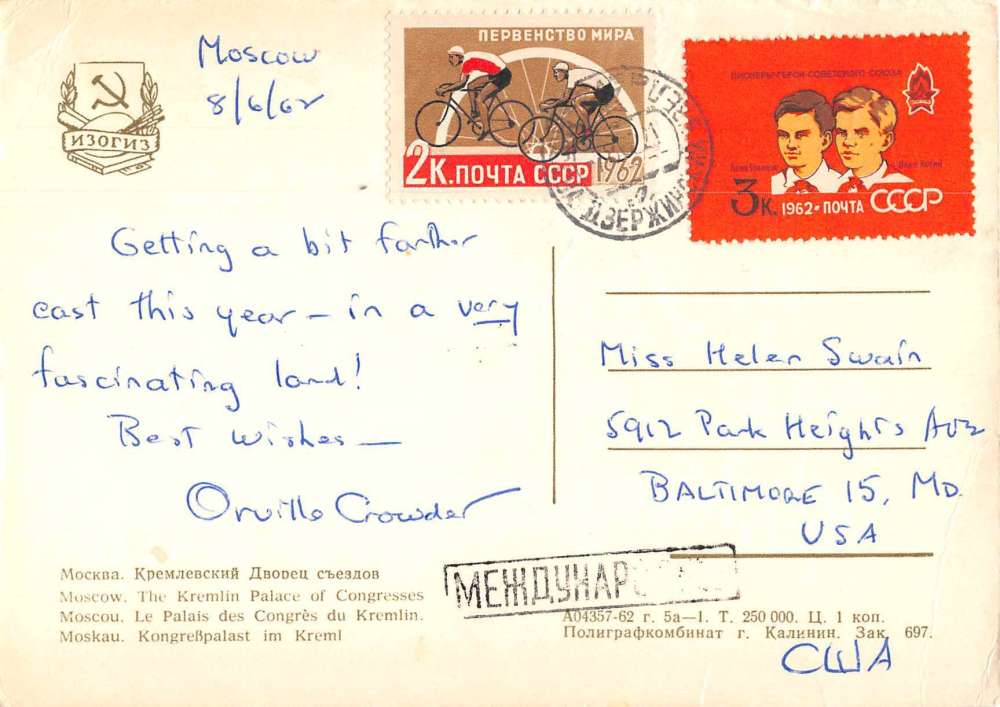 Moscow
8/6/62
ИЗОГИЗ
ПЕРВЕНСТВО МИРА
2К. ПОЧТА СССР 1962
ПИОНЕРЫ-ГЕРОИ СОВЕТСКОГО СОЮЗА
3К. 1962 ПОЧТА СССР
ДЗЕРЖИНСК
Getting a bit farther
east this year — in a very
fascinating land!
Best wishes —
Orville Crowder
Miss Helen Swain
5912 Park Heights Ave
BALTIMORE 15, MD.
USA
МЕЖДУНАР
Москва. Кремлевский Дворец съездов
Moscow. The Kremlin Palace of Congresses
Moscou. Le Palais des Congrès du Kremlin.
Moskau. Kongreßpalast im Kreml
А04357-62 г. 5а—1. Т. 250 000. Ц. 1 коп.
Полиграфкомбинат г. Калинин. Зак. 697.
США